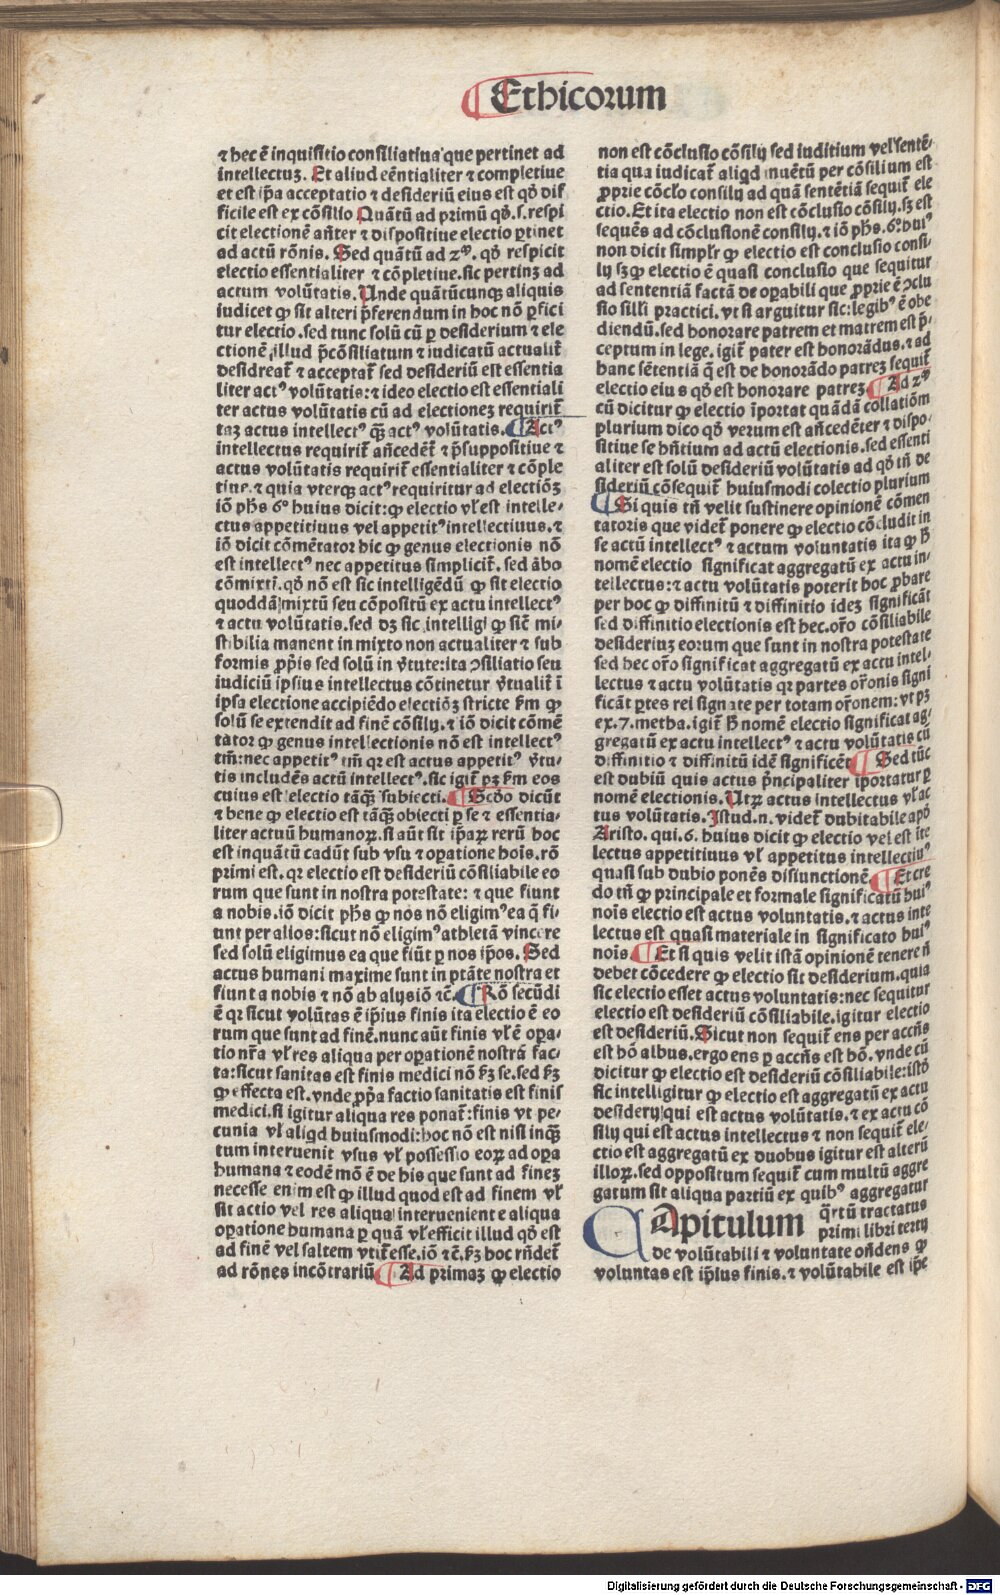 Ethicorum
⁊ hec ē inquisitio consiliatiua que pertinet ad
intellectuꝫ. Et aliud eēntialiter ⁊ completiue
et est ip̄a acceptatio ⁊ desideriū eius est qd̄ dif
ficile est ex cōsilio Quātū ad primū qd̄.s.respi
cit electionē an̄ter ⁊ dispositiue electio ꝑtinet
ad actū rōnis. Sed quātū ad 2ᵐ. qd̄ respicit
electio essentialiter ⁊ cōpletiue.sic pertinꝫ ad
actum volūtatis. Unde quātūcunqꝫ aliquis
iudicet ꝙ sit alteri p̄ferendum in hoc nō ꝑfici
tur electio.sed tunc solū cū ꝑ desiderium ⁊ ele
ctionē illud p̄cōsiliatum ⁊ iudicatū actualit̄
desidreat̄ ⁊ acceptat̄ sed desideriū est essentia
liter actꝰ volūtatis:⁊ ideo electio est essentiali
ter actus volūtatis cū ad electioneꝫ requirit̄
taꝫ actus intellectꝰ qꝫ̄ actꝰ volūtatis. Actꝰ
intellectus requirit̄ an̄cedēt̄ ⁊ p̄suppositiue ⁊
actus volūtatis requirit̄ essentialiter ⁊ cōple
tiue.⁊ quia vterqꝫ actꝰ requiritur ad electiōꝫ
iō ph̄s 6º huius dicit:ꝙ electio vl̄ est intelle-
ctus appetitiuus vel appetitꝰ intellectiuus.⁊
iō dicit cōmētator hic ꝙ genus electionis nō
est intellectꝰ nec appetitus simplicit̄. sed ābo
cōmixti.qd̄ nō est sic intelligēdū ꝙ sit electio
quoddā mixtū seu cōpositū ex actu intellectꝰ
⁊ actu volūtatis.sed dꝫ sic intelligi ꝙ sic̄ mi-
stibilia manent in mixto non actualiter ⁊ sub
formis ꝓp̄is sed solū in v̄tute:ita ↄsiliatio seu
iudiciū ipsius intellectus cōtinetur v̄tualit̄ ī
ipsa electione accipiēdo electiōꝫ stricte ẜm ꝙ
solū se extendit ad finē cōsily.⁊ iō dicit cōmē
tator ꝙ genus intellectionis nō est intellectꝰ
tm̄:nec appetitꝰ tm̄ qꝛ est actus appetitꝰ v̄tu-
tis includēs actū intellectꝰ.sic igit̄ pꝫ ẜm eos
cuius est electio tāqꝫ̄ subiecti. Scd̄o dicūt
⁊ bene ꝙ electio est tāqꝫ̄ obiecti ꝑ se ⁊ essentia-
liter actuū humanoꝝ.si aūt sit ip̄aꝝ rerū hoc
est inquātū cadūt sub vsu ⁊ oꝑatione hoīs.rō
primi est.qꝛ electio est desideriū cōsiliabile eo
rum que sunt in nostra potestate: ⁊ que fiunt
a nobis.iō dicit ph̄s ꝙ nos nō eligimꝰ ea q̄ fi-
unt per alios:sicut nō eligimꝰ athletā vincere
sed solū eligimus ea que fiūt ꝑ nos ip̄os. Sed
actus humani maxime sunt in ptāte nostra et
fiunt a nobis ⁊ nō ab alysiō ⁊c̄. Rō secūdi
ē qꝛ sicut volūtas ē ip̄ius finis ita electio ē eo
rum que sunt ad finē.nunc aūt finis vl̄ ē oꝑa-
tio nr̄a vl̄ res aliqua per oꝑationē nostrā fac-
ta:sicut sanitas est finis medici nō ẜꝫ se.sed ẜꝫ
ꝙ effecta est.vnde ꝓp̄a factio sanitatis est finis
medici.si igitur aliqua res ponat̄:finis vt pe-
cunia vl̄ aliqd huiusmodi:hoc nō est nisi inqꝫ̄
tum interuenit vsus vl̄ possessio eoꝝ ad oꝑa
humana ⁊ eodē mō ē de his que sunt ad fineꝫ
necesse enim est ꝙ illud quod est ad finem vl̄
sit actio vel res aliqua interueniente aliqua
oꝑatione humana ꝑ quā vl̄ efficit illud qd̄ est
ad finē vel saltem vtit̄ esse.iō ⁊c̄.ẜꝫ hoc rn̄det̄
ad rōnes incōtrariū Ad primaꝫ ꝙ electio
non est cōclusio cōsily sed iuditium vel sentē-
tia qua iudicat̄ aliqd inuētū per cōsilium est
ꝓprie cōclo consily ad quā sentētiā sequit̄ ele
ctio.Et ita electio non est conclusio cōsily.sꝫ est
sequēs ad cōclusionē consily.⁊ iō ph̄s.6º huiꝰ
non dicit simpl̄r ꝙ electio est conclusio consi-
ly sꝫ ꝙ electio ē quasi conclusio que sequitur
ad sententiā factā de oꝑabili que ꝓprie ē ↄclu
sio silli practici.vt si arguitur sic:legibꝰ ē obe
diendū.sed honorare patrem et matrem est p̄-
ceptum in lege.igit̄ pater est honorādus.⁊ ad
hanc sētentiā q̄ est de honorādo patreꝫ sequit̄
electio eius qd̄ est honorare patreꝫ Ad 2ᵐ
cū dicitur ꝙ electio īportat quādā collatiōm
plurium dico qd̄ verum est an̄cedēter ⁊ dispo-
sitiue se hn̄tium ad actū electionis.sed essenti
aliter est solū desideriū volūtatis ad qd̄ tn̄ de
sideriū cōsequit̄ huiusmodi colectio plurium
Si quis tn̄ velit sustinere opinionē cōmen
tatoris que videt̄ ponere ꝙ electio cōcludit in
se actū intellectꝰ ⁊ actum voluntatis ita ꝙ h̄
nomē electio significat aggregatū ex actu in-
tellectus:⁊ actu volūtatis poterit hoc ꝓbare
per hoc ꝙ diffinitū ⁊ diffinitio ideꝫ significāt
sed diffinitio electionis est hec.or̄o cōsiliabile
desideriuꝫ eorum que sunt in nostra potestate
sed hec or̄o significat aggregatū ex actu intel-
lectus ⁊ actu volūtatis qꝛ partes or̄onis signi
ficāt ꝑtes rei signate per totam or̄onem:vt pꝫ
ex.7.metha.igit̄ h̄ nomē electio significat ag-
gregatū ex actu intellectꝰ ⁊ actu volūtatis cū
diffinitio ⁊ diffinitū idē significēt Sed tūc
est dubiū quis actus p̄ncipaliter īportatur ꝑ
nomē electionis. Utꝝ actus intellectus vl̄ ac
tus volūtatis. Istud.n. videt̄ dubitabile apd̄
Aristo. qui.6. huius dicit ꝙ electio vel est īte
lectus appetitiuus vl̄ appetitus intellectiuꝰ
quasi sub dubio ponēs disiunctionē Et cre
do tn̄ ꝙ principale et formale significatū huiꝰ
nois electio est actus voluntatis.⁊ actus inte
lectus est quasi materiale in significato huiꝰ
noīs Et si quis velit istā opinionē tenere n̄
debet cōcedere ꝙ electio sit desiderium.quia
sic electio esset actus voluntatis:nec sequitur
electio est desideriū cōsiliabile.igitur electio
est desideriū. Sicut non sequit̄ ens per accn̄s
est hō albus.ergo ens ꝑ accn̄s est hō. vnde cū
dicitur ꝙ electio est desideriū cōsiliabile:istd̄
sic intelligitur ꝙ electio est aggregatū ex actu
desidery qui est actus volūtatis.⁊ ex actu cō
sily qui est actus intellectus ⁊ non sequit̄ ele-
ctio est aggregatū ex duobus igitur est alterū
illoꝝ.sed oppositum sequit̄ cum multū aggre
gatum sit aliqua partiū ex quibꝰ aggregatur
CApitulum q̄rtū tractatus
primi libri tertij
de volūtabili ⁊ voluntate on̄dens ꝙ
voluntas est ip̄ius finis.⁊ volūtabile est ip̄e
Digitalisierung gefördert durch die Deutsche Forschungsgemeinschaft - DFG